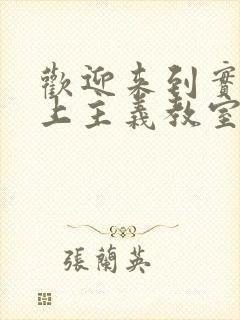 歡迎來到實
上主義教室
張蘭英